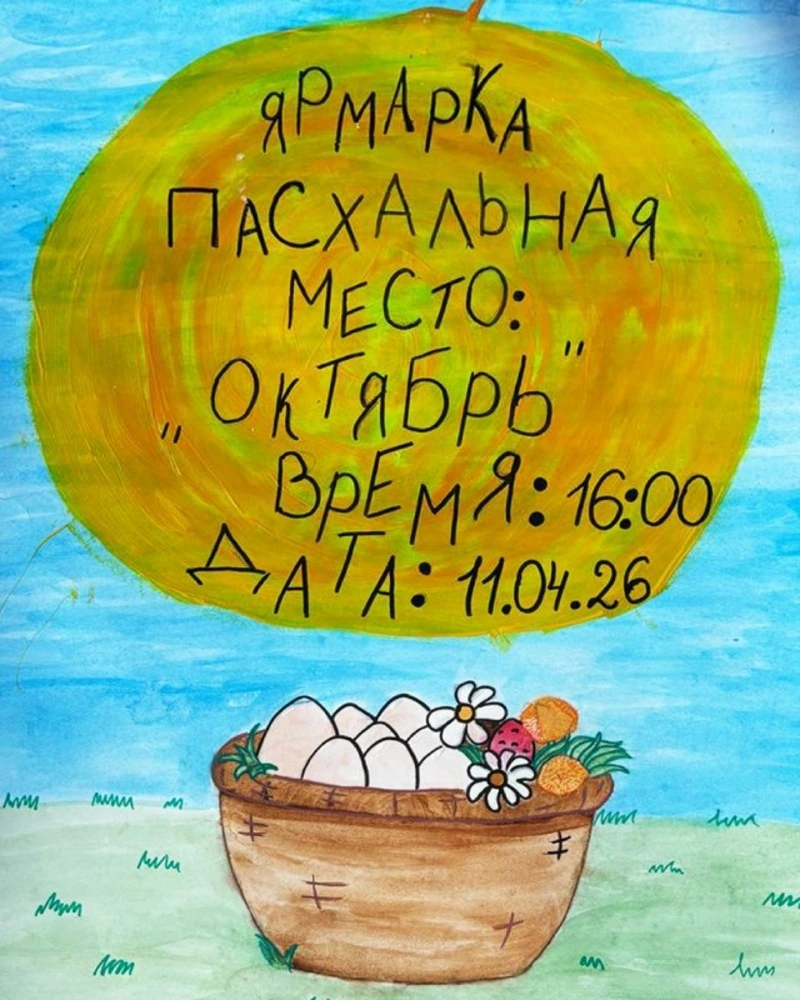 ЯРМАРКА
ПАСХАЛЬНАЯ
МЕСТО:
„ОКТЯБРЬ"
ВРЕМЯ: 16:00
ДАТА: 11.04.26